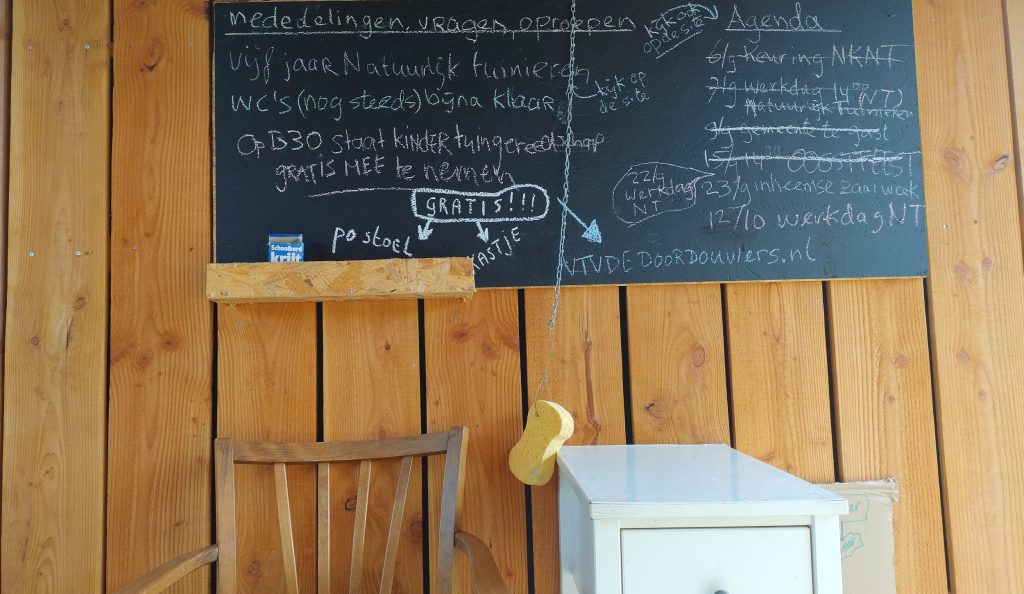 mededelingen, vragen, oproepen
kijk ook
op de site
Vijf jaar Natuurlijk tuinieren
WC's (nog steeds) bijna klaar
kijk op
de site
Op B30 staat KINDER tuingereedschap
GRATIS MEE te nemen
GRATIS!!!
po stoel
KASTJE
VTVDEDOORDOUWERS.nl
Agenda
6/9 Keuring NKNT
7/9 werkdag (NT)
Natuurlijk Tuinieren
9/9 gemeente te gast
22/9
werkdag
NT
23/9 inheemse zaai week
12/10 werkdag NT
Schoolbord
krijt